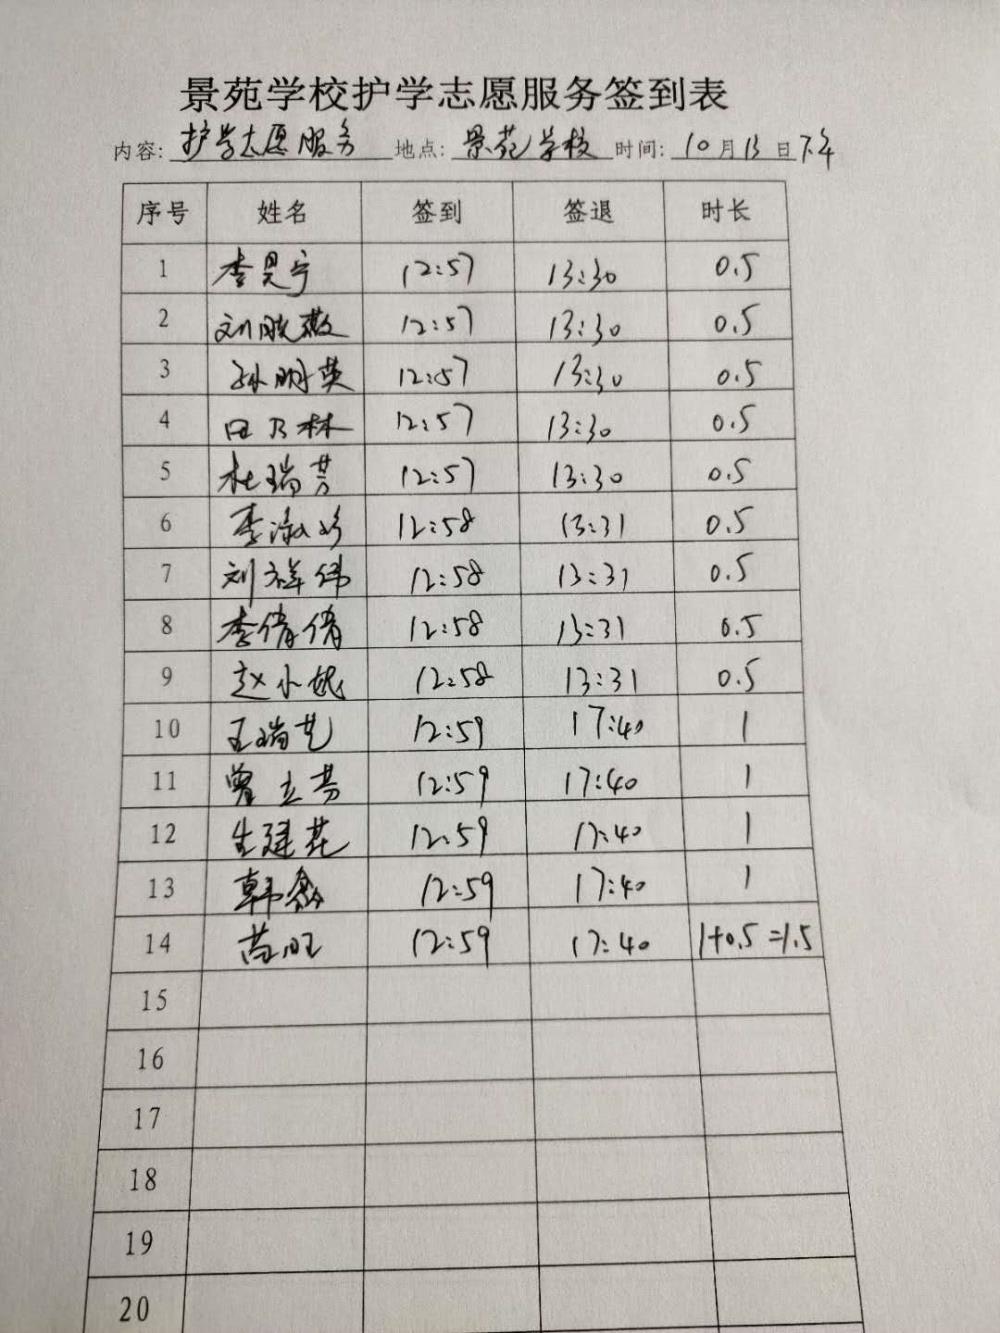 景苑学校护学志愿服务签到表
内容: 护学志愿服务 地点: 景苑学校 时间: 10月13日下午
序号 姓名 签到 签退 时长
1 李昊宁 12:57 13:30 0.5
2 刘晓薇 12:57 13:30 0.5
3 孙明英 12:57 13:30 0.5
4 田乃林 12:57 13:30 0.5
5 杜瑞芳 12:57 13:30 0.5
6 李淑珍 12:58 13:31 0.5
7 刘祥伟 12:58 13:31 0.5
8 李倩倩 12:58 13:31 0.5
9 赵小妮 12:58 13:31 0.5
10 王瑞艺 12:59 17:40 1
11 曾立芳 12:59 17:40 1
12 生建花 12:59 17:40 1
13 韩鑫 12:59 17:40 1
14 苗旺 12:59 17:40 1+0.5=1.5
15
16
17
18
19
20